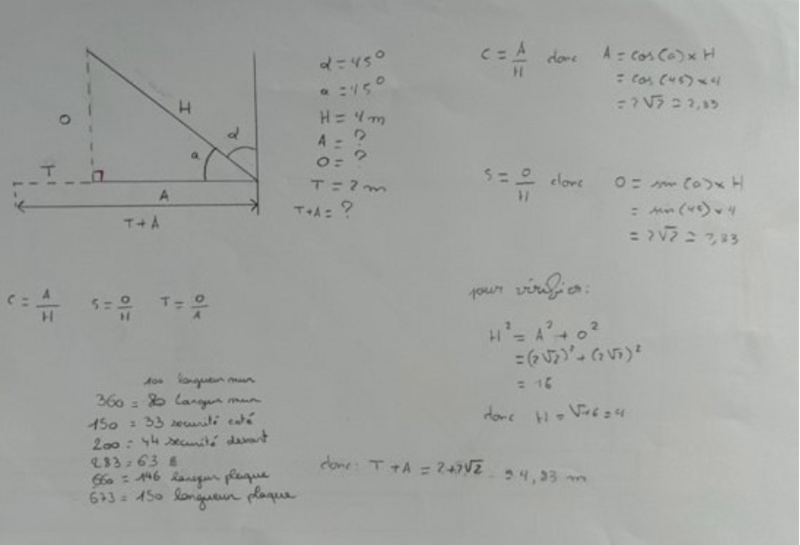 O
H
α
a
T
A
T+A
α = 45°
a = 45°
H = 4 m
A = ?
O = ?
T = 2 m
T+A = ?
C = A/H donc A = cos(a) x H
= cos(45) x 4
= 2√2 = 2,83
S = O/H donc O = sin(a) x H
= sin(45) x 4
= 2√2 = 2,83
C = A/H S = O/H T = O/A
pour vérifier:
H² = A² + O²
= (2√2)² + (2√2)²
= 16
donc H = √16 = 4
100 longueur mur
360 = 80 largeur mur
150 = 33 securité coté
200 = 44 securité devant
283 = 63
660 = 146 largeur plaque
673 = 150 longueur plaque
donc: T + A = 2+2√2 4,83 m